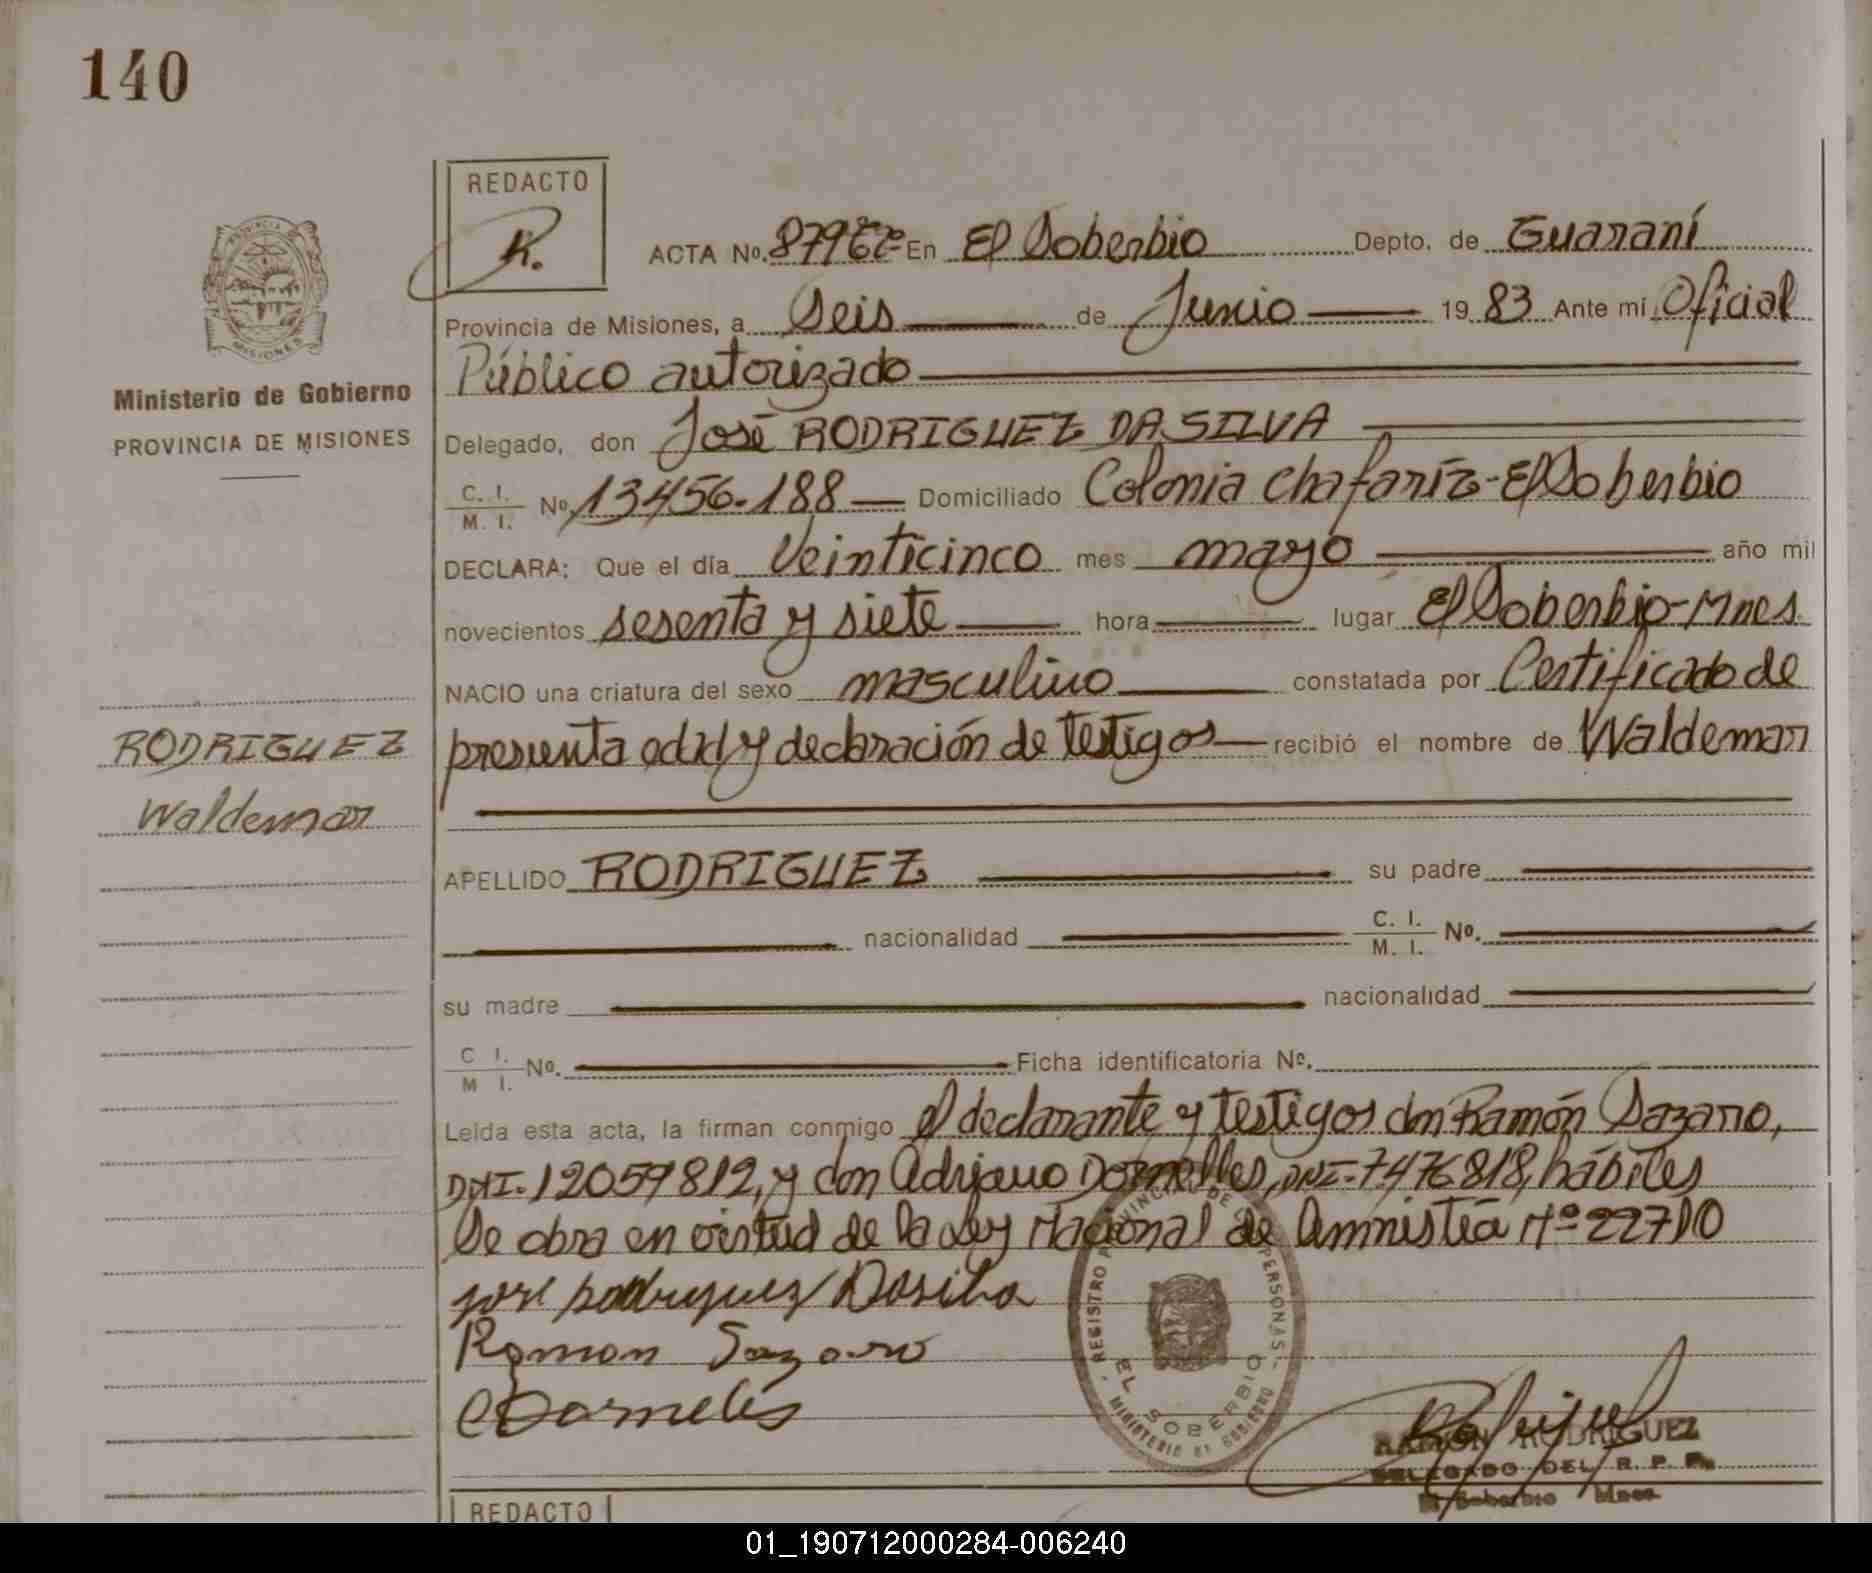 140
REDACTO
R.
ACTA No. 879 En El Soberbio Depto. de Guaraní
Provincia de Misiones, a Seis de Junio 19 83 Ante mí Oficial
Público autorizado
Ministerio de Gobierno
PROVINCIA DE MISIONES
Delegado, don José RODRIGUEZ DA SILVA
C. I.
M. I. No. 13456.188 Domiciliado Colonia Chafariz-El Soberbio
DECLARA: Que el día Veinticinco mes mayo año mil
novecientos sesenta y siete hora lugar El Soberbio-Mnes.
NACIO una criatura del sexo masculino constatada por Certificado de
RODRIGUEZ
Waldemar
presunta edad y declaración de testigos recibió el nombre de Waldemar
APELLIDO RODRIGUEZ su padre
nacionalidad C. I.
M. I. No.
su madre nacionalidad
C I.
M I. No. Ficha identificatoria No.
Leida esta acta, la firman conmigo el declarante y testigos don Ramón Sazano,
DNI. 12059812, y don Adriano Dornelles, DNI-7476818, hábiles
Se obra en virtud de la Ley Nacional de Amnistía Nº 22710
José Rodriguez Dasilva
Ramon
Dornelis
REGISTRO PROVINCIAL DE PERSONAS
EL SOBERBIO
MINISTERIO DE GOBIERNO
RAMON RODRIGUEZ
DELEGADO DEL R. P. P.
El Soberbio Mnes
REDACTO
01_190712000284-006240